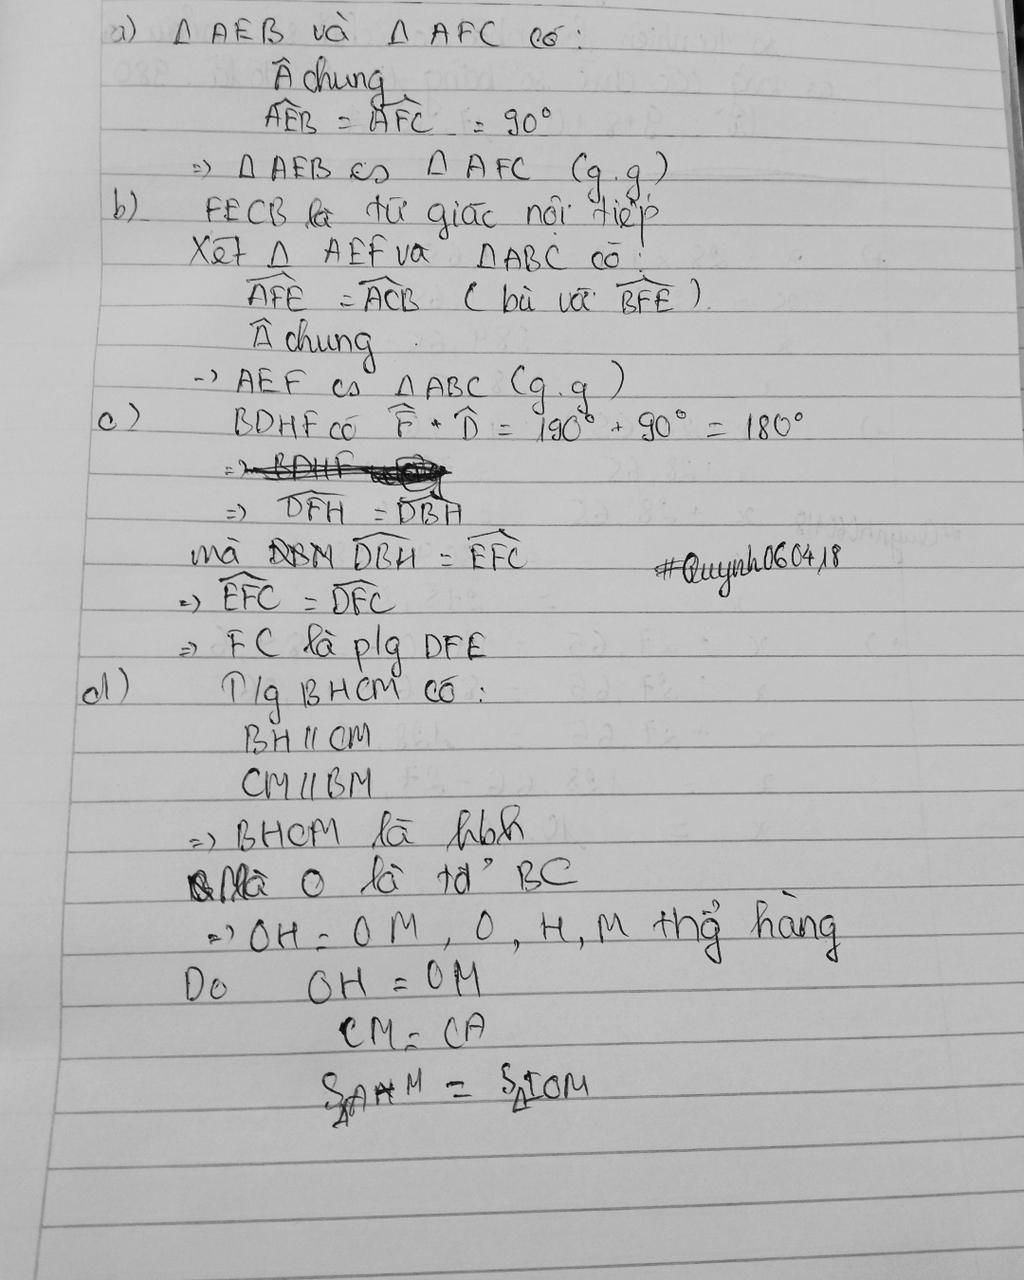 a) Δ AEB và Δ AFC có:
Â chung
AEB = AFC = 90°
=> Δ AEB ᔕ Δ AFC (g.g)
b) FECB là tứ giác nội tiếp
Xét Δ AEF và ΔABC có:
AFE = ACB (bù với BFE).
Â chung
-> AEF ᔕ ΔABC (g.g)
c) BDHF có F̂ + D̂ = 190° + 90° = 180°
=> DFH = DBH
mà DBH = EFC
#Quynh060418
=> EFC = DFC
=> FC là p/g DFE
d) T/g BHCM có:
BH // CM
CM // BM
=> BHCM là hbh
Mà O là tđ' BC
=> OH = OM, O, H, M thẳng hàng
Do OH = OM
CM = CA
SΔAHM = SΔIOM